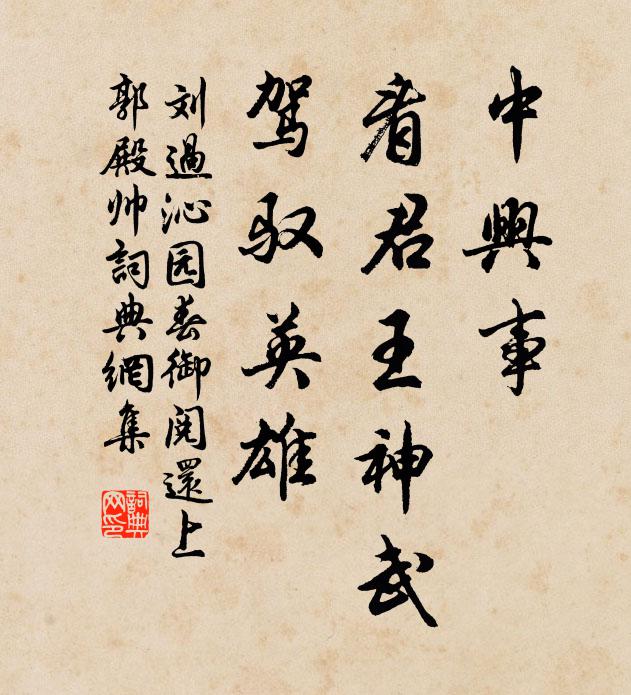 中興事
看君王神武
駕馭英雄
刘過沁园春御閱還上
郭殿帅詞典網集
詞典网印